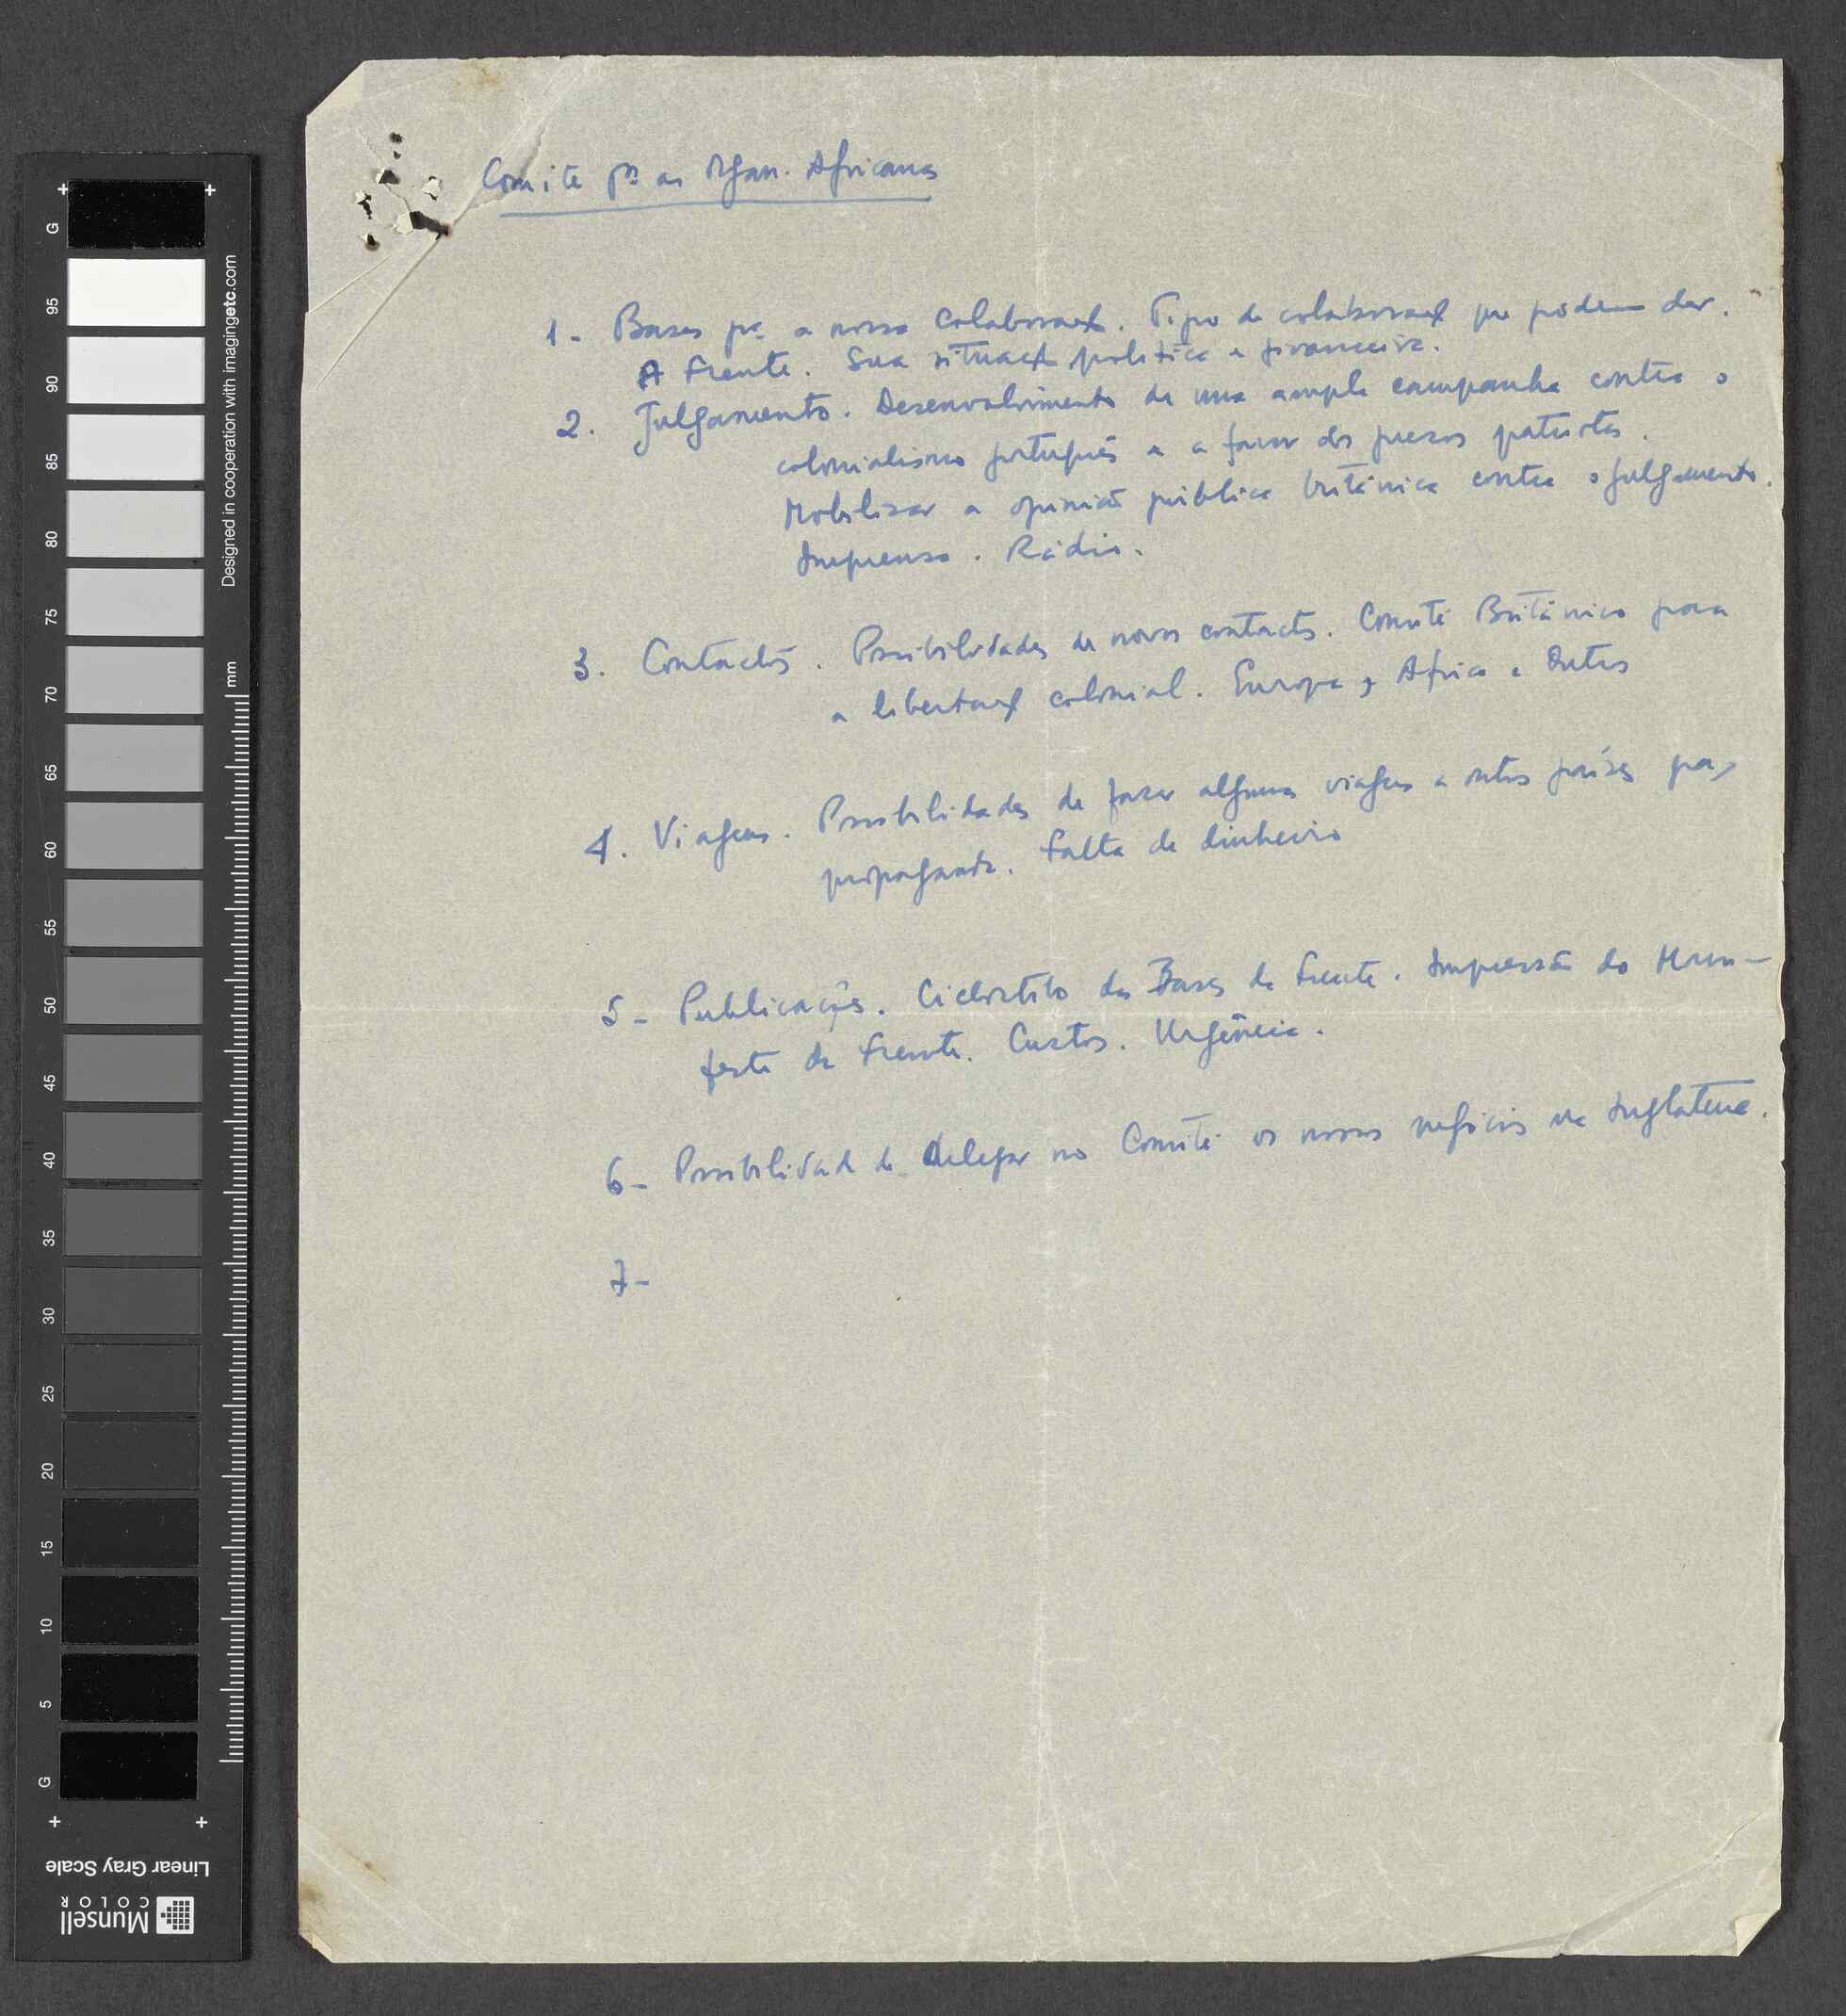 Comité pª as Organ. Africanas
1 - Bases pª a nossa colaboraçẽ. Tipo de colaboraçẽ que podem dar.
A Frente. Sua situaçẽ política e financeira.
2. Julgamento. Desenvolvimento de uma ampla campanha contra o
colonialismo português e a favor dos presos patriotas.
Mobilizar a opinião pública britânica contra o julgamento.
Imprensa. Rádio.
3. Contactos. Possibilidades de novos contactos. Comité Britânico para
a libertaçẽ colonial. Europa, África e Outros
4. Viagens. Possibilidades de fazer algumas viagens a outros países para
propaganda. Falta de dinheiro
5 - Publicações. Ciclostilo das Bases da Frente. Impressão do Mani-
festo da Frente. Custos. Urgência.
6 - Possibilidade de delegar no Comité os nossos negócios na Inglaterra.
7 -
Munsell
COLOR
Linear Gray Scale
Designed in cooperation with imagingetc.com
mm
G 95 90 85 80 75 70 65 60 55 50 45 40 35 30 25 20 15 10 5 G